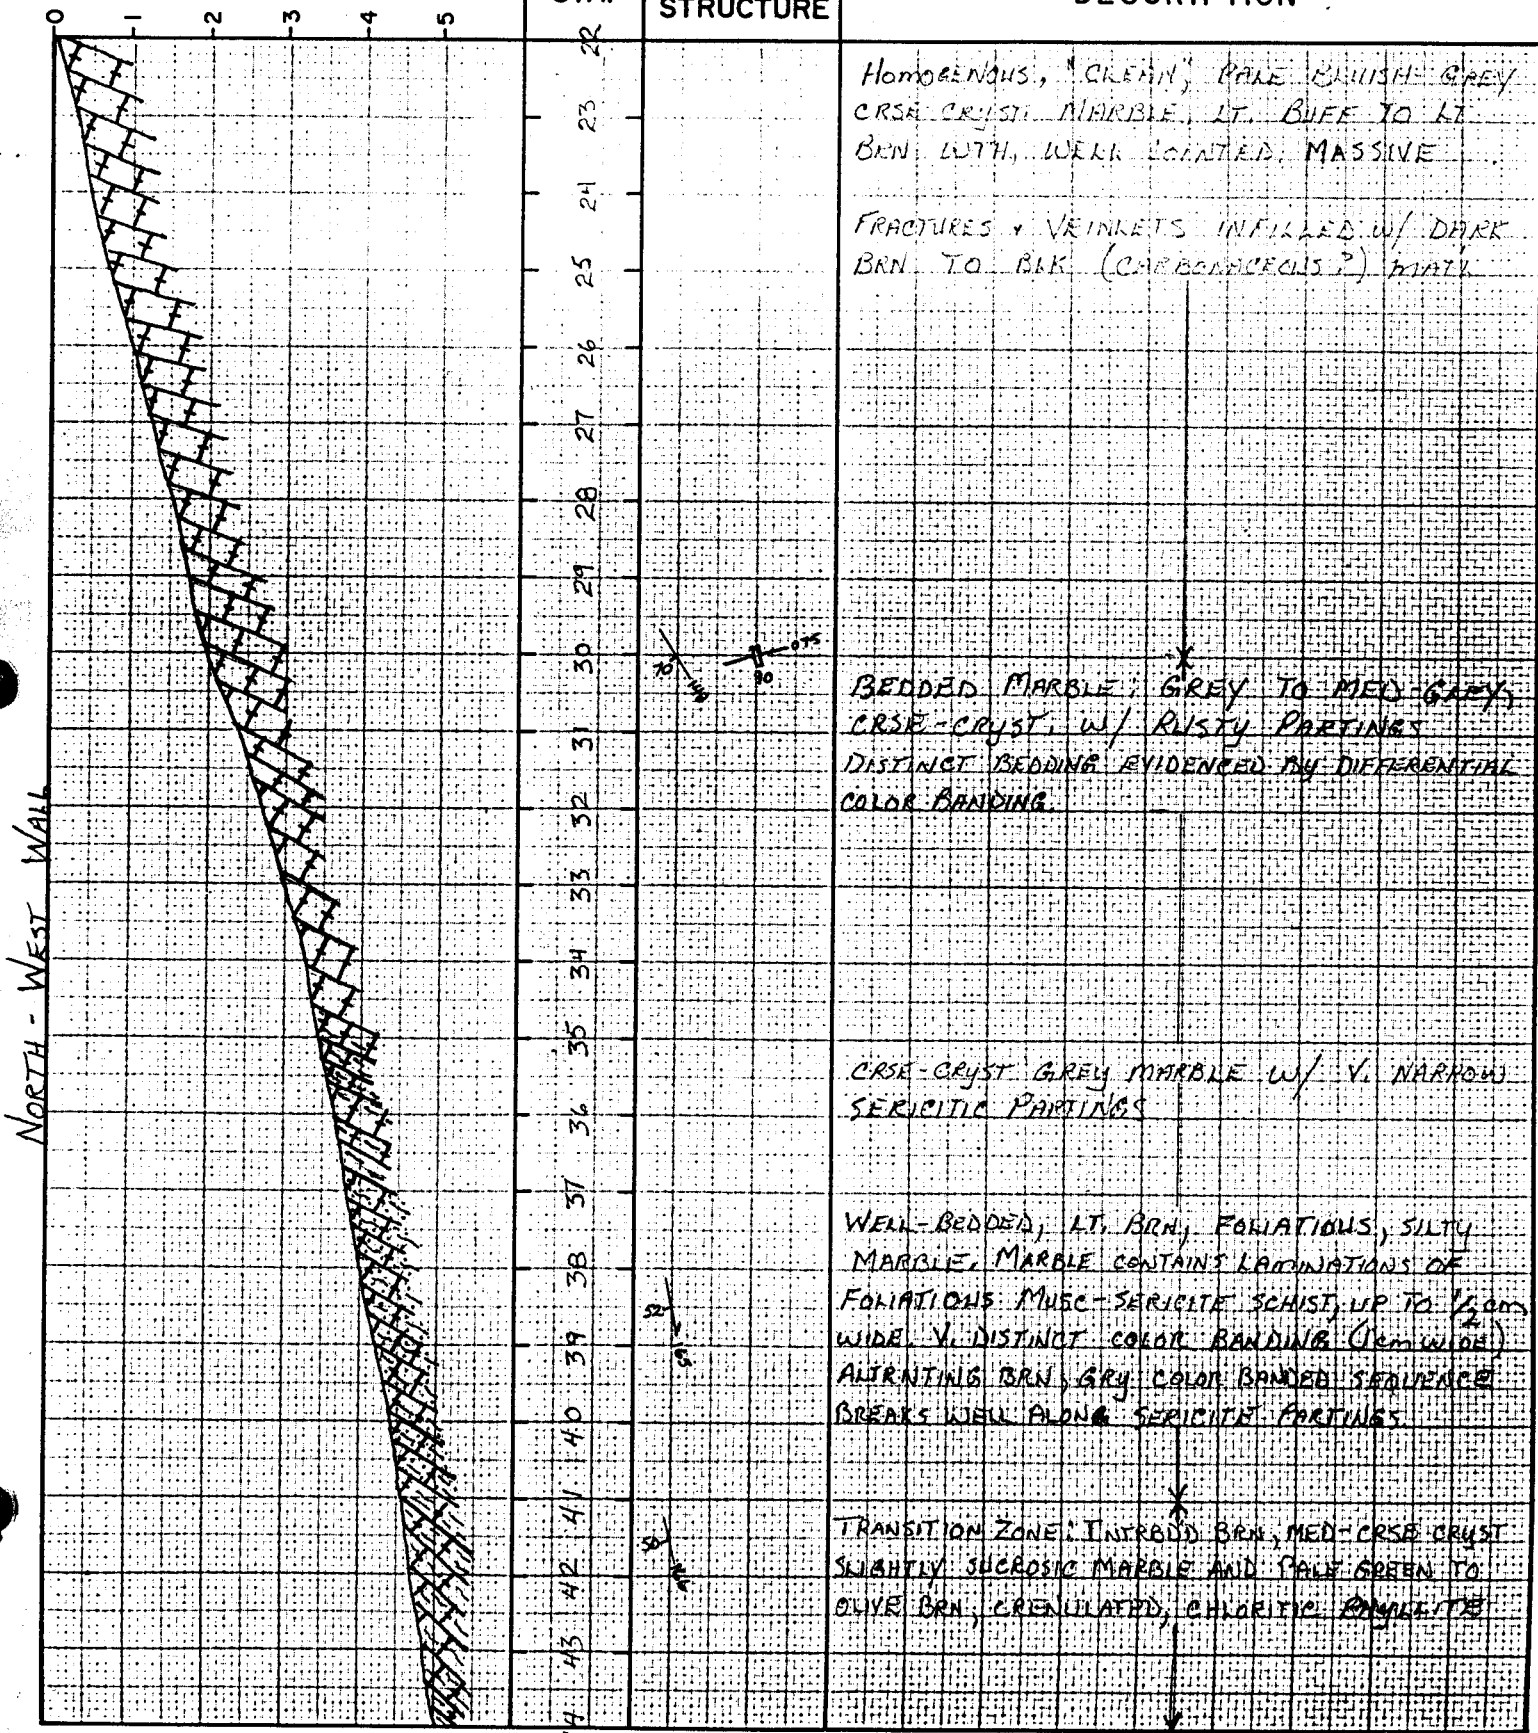 0 1 2 3 4 5
STRUCTURE
DESCRIPTION
NORTH - WEST WALL
22
HOMOGENOUS, "CLEAN", PALE BLUISH-GREY
CRSE CRYST. MARBLE, LT. BUFF TO LT
BRN WTH, WELL JOINTED, MASSIVE
23
24
FRACTURES + VEINLETS INFILLED W/ DARK
BRN TO BLK (CARBONACEOUS?) MATL
25
26
27
28
29
30
70 140
075
90
BEDDED MARBLE: GREY TO MED-GREY,
CRSE-CRYST. W/ RUSTY PARTINGS
DISTINCT BEDDING EVIDENCED BY DIFFERENTIAL
COLOR BANDING.
31
32
33
34
35
CRSE-CRYST GREY MARBLE W/ V. NARROW
SERICITIC PARTINGS
36
37
WELL-BEDDED, LT. BRN, FOLIATIOUS, SILTY
MARBLE. MARBLE CONTAINS LAMINATIONS OF
FOLIATIOUS MUSC-SERICITE SCHIST, UP TO 1/2 cm
WIDE. V. DISTINCT COLOR BANDING (1cm WIDE)
ALTRNTING BRN, GRY COLOR BANDED SEQUENCE
BREAKS WELL ALONG SERICITE PARTINGS.
38
52
39
40
41
TRANSITION ZONE: INTRBDD BRN, MED-CRSE CRYST
SLIGHTLY SUCROSIC MARBLE AND PALE GREEN TO
OLIVE BRN, CRENULATED, CHLORITIC PHYLLITE
50
42
43